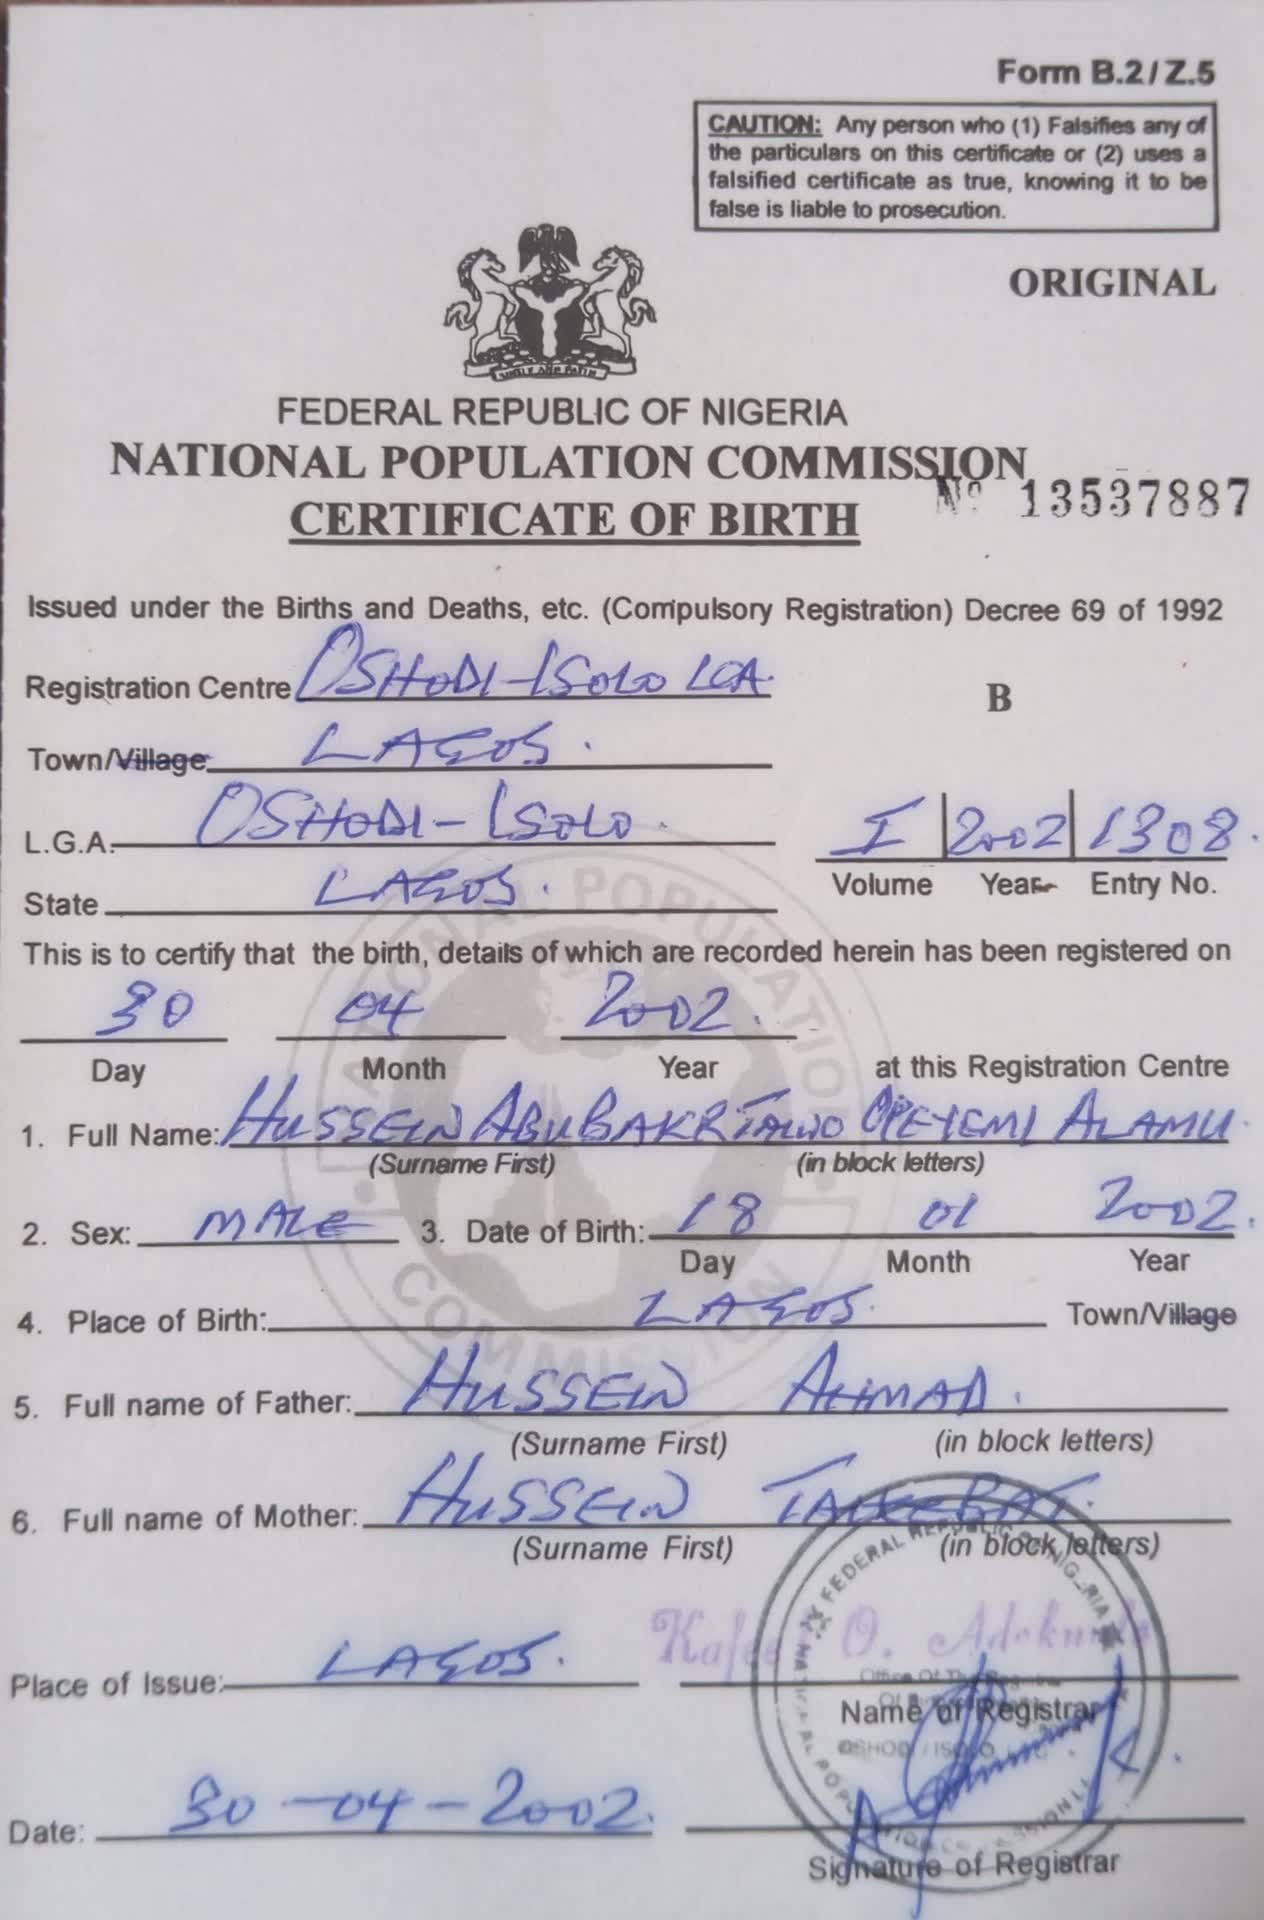 Form B.2/Z.5
CAUTION: Any person who (1) Falsifies any of
the particulars on this certificate or (2) uses a
falsified certificate as true, knowing it to be
false is liable to prosecution.
ORIGINAL
UNITY AND FAITH
FEDERAL REPUBLIC OF NIGERIA
NATIONAL POPULATION COMMISSION
CERTIFICATE OF BIRTH
Nº 13537887
Issued under the Births and Deaths, etc. (Compulsory Registration) Decree 69 of 1992
Registration Centre OSHODI-ISOLO LGA.
B
Town/Village LAGOS.
L.G.A. OSHODI-ISOLO.
I 2002 1308.
Volume Year Entry No.
State LAGOS.
This is to certify that the birth, details of which are recorded herein has been registered on
30 04 2002.
Day Month Year at this Registration Centre
1. Full Name: HUSSEIN ABUBAKR TAIWO OPEYEMI ALAMU.
(Surname First) (in block letters)
2. Sex: MALE 3. Date of Birth: 18 01 2002.
Day Month Year
4. Place of Birth: LAGOS. Town/Village
5. Full name of Father: HUSSEIN AHMAD.
(Surname First) (in block letters)
6. Full name of Mother: HUSSEIN
(Surname First) (in block letters)
Place of Issue: LAGOS.
O.
Name of Registrar
Date: 30-04-2002.
Signature of Registrar
NATIONAL POPULATION COMMISSION
FEDERAL REPUBLIC OF NIGERIA